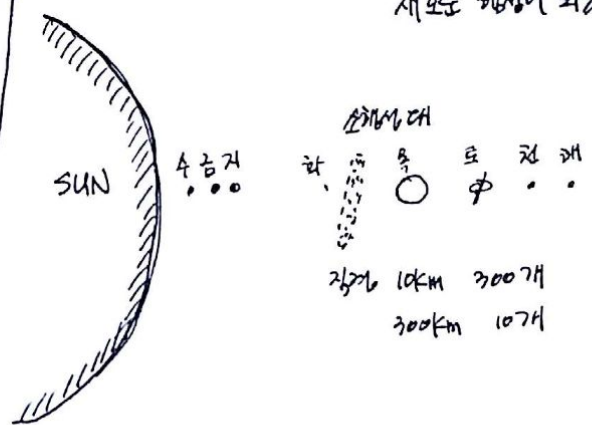 새로운 행성이
소행성대
SUN 수 금 지 화 목 토 천 해
직경 10km 300개
300km 10개